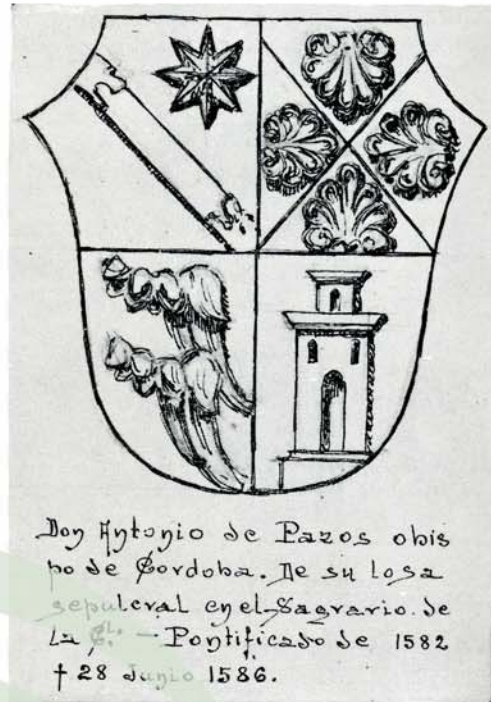 Don Antonio de Pazos obis
po de Cordoba. De su losa
sepulcral en el Sagrario de
La C.L. — Pontificado de 1582
† 28 Junio 1586.